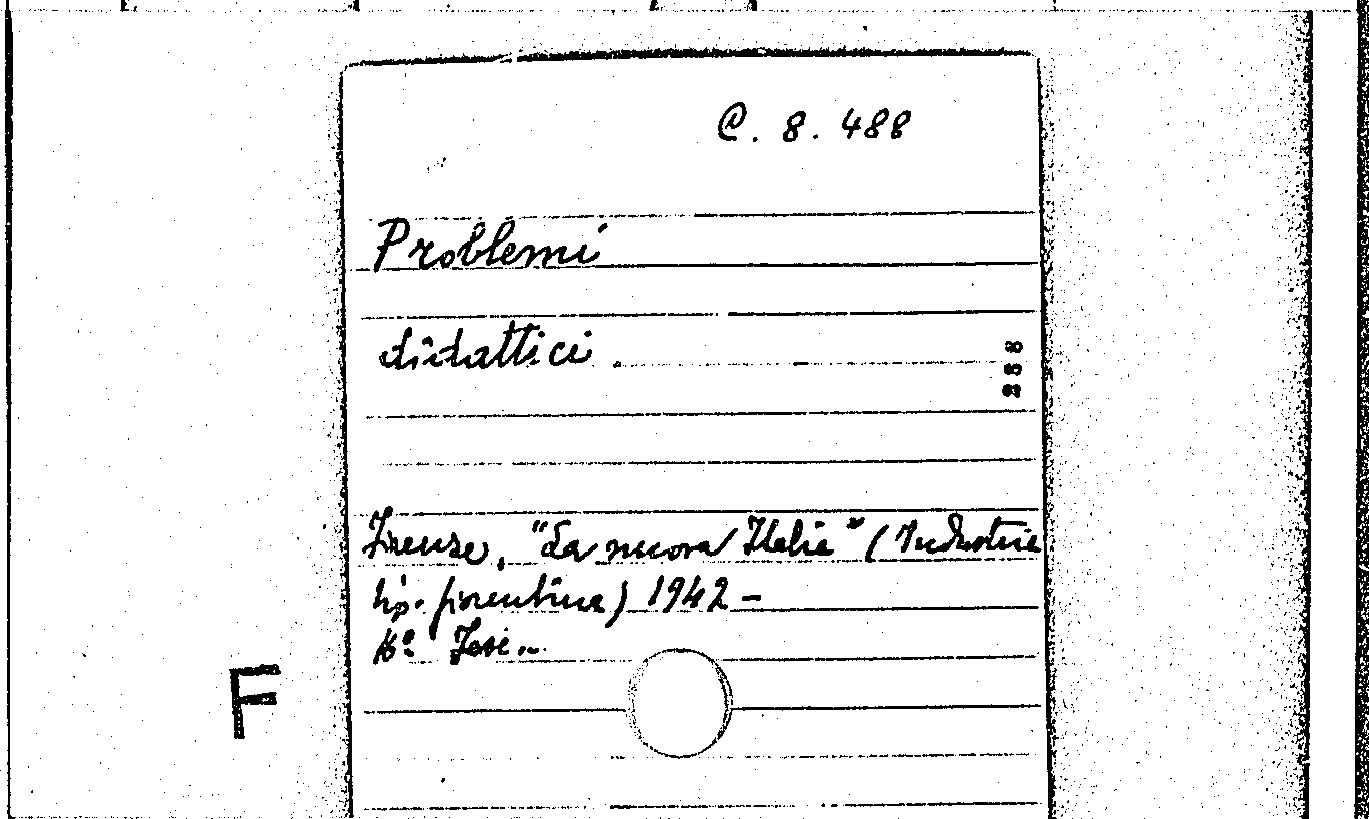 C. 8. 488
Problemi
didattici.
Firenze, "La nuova Italia" (Industrie
tip. fiorentina) 1942 -
8º
F